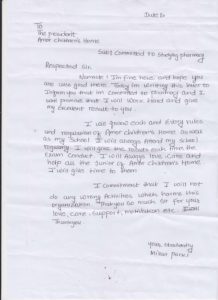 Date:
To
The president
Amor children's Home
Sub: Committed to studying pharmacy
Respected Sir,
Namaste! I'm fine here and hope you
are also good there. Today I'm writing this letter to
inform you that im committed to pharmacy and I
will promise that I will work hard and give
my excellent result to you.
I will good code and every rules
and regulation of Amor children's Home as well
as my school. I will always attend my school
regularly. I will give the results each time the
Exam conduct. I will always love, care and
help all the junior of Amor children's Home
I will give time to them
I commitment that I will not
do any wrong Activities which harms this
organization. Thankyou so much sir for your
love, care, support, motivation etc.
Thankyou
yours, obediently
Milan